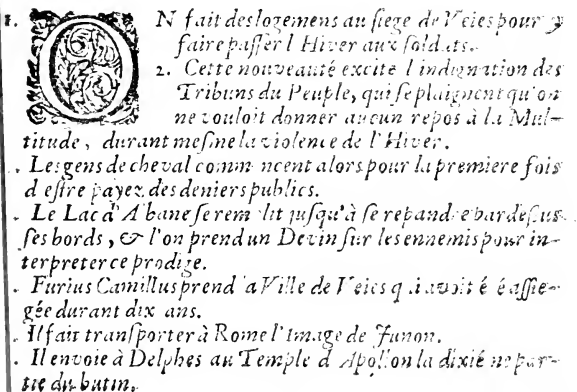 1. ON fait des logemens au siege de Veies pour y
faire passer l'Hiver aux soldats.
2. Cette nouveauté excite l'indignation des
Tribuns du Peuple, qui se plaignent qu'on
ne vouloit donner aucun repos à la Mul-
titude, durant mesme la violence de l'Hiver.
. Les gens de cheval commencent alors pour la premiere fois
d'estre payez des deniers publics.
. Le Lac d'Albane se remplit jusqu'à se repandre par dessus
ses bords, & l'on prend un Devin sur les ennemis pour in-
terpreter ce prodige.
. Furius Camillus prend la Ville de Veies qui avoit été assie-
gée durant dix ans.
. Il fait transporter à Rome l'Image de Junon.
. Il envoie à Delphes au Temple d'Apollon la dixiéme par-
tie du butin.